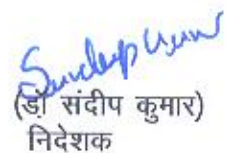 Sandeep Kumar
(डॉ संदीप कुमार)
निदेशक